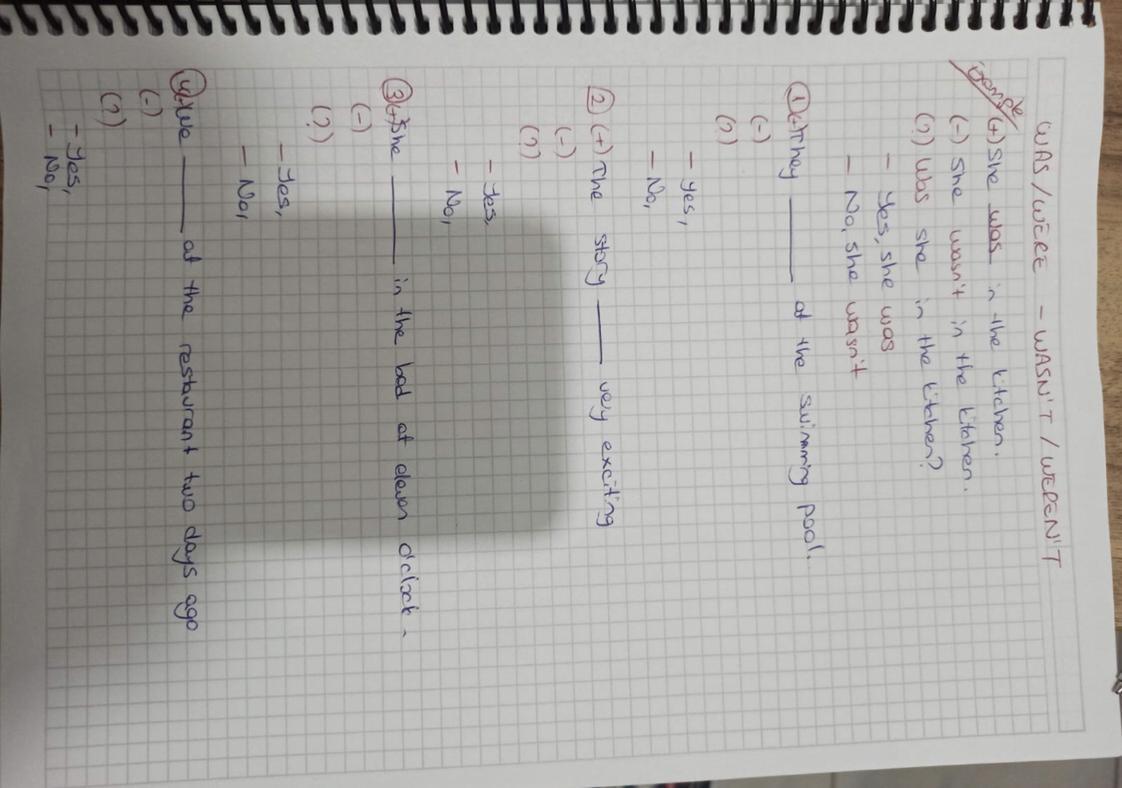 WAS / WERE - WASN'T / WEREN'T
Example (+) She was in the kitchen.
(-) She wasn't in the kitchen.
(?) Was she in the kitchen?
- Yes, she was
- No, she wasn't
① (+) They ______ at the swimming pool.
(-)
(?)
- Yes,
- No,
2 (+) The story ______ very exciting
(-)
(?)
- Yes,
- No,
③ (+) She ______ in the bad at eleven o'clock.
(-)
(?)
- Yes,
- No,
④ (+) We ______ at the restaurant two days ago
(-)
(?)
- Yes,
- No,